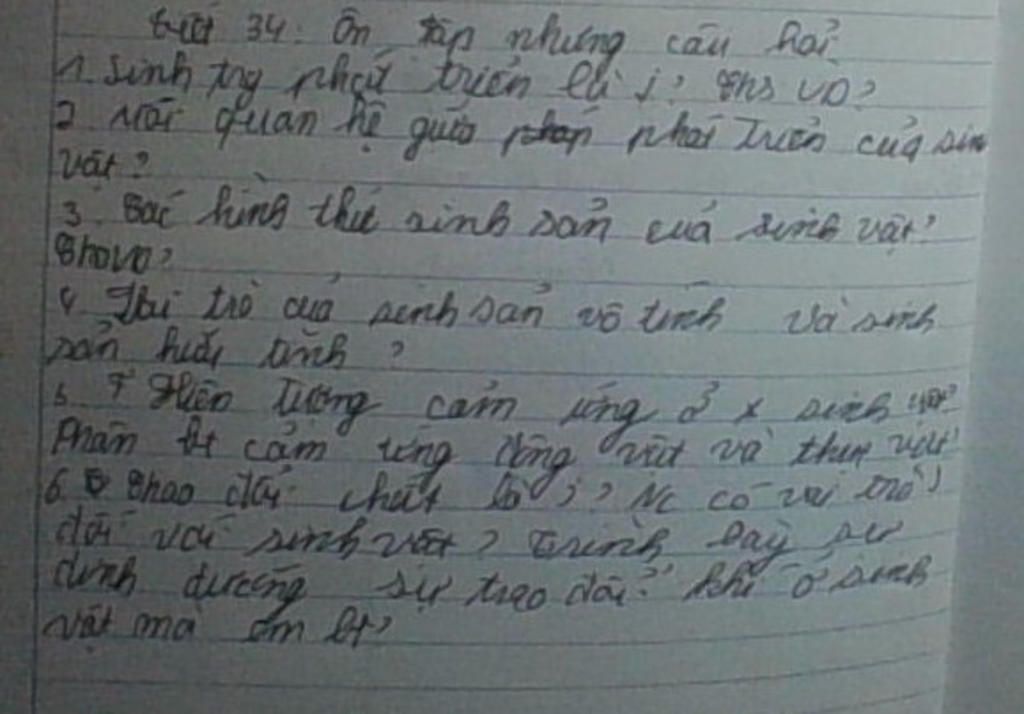 34: Ôn tập nhưng câu hỏi
1. Sinh trg phát triển là j? Cho VD?
2 Mối quan hệ giữa phát triển của sin
vật?
3. Các hình thứ sinh sản của sinh vật?
Cho VD?
4 Vai trò của sinh sản vô tính và sinh
sản hữu tính?
5. Hiện tượng cảm ứng ở x sinh vật?
Phân bt cảm ứng động vật và thực vật?
6. Trao đổi chất là j? Nc có vai trò
đối với sinh vật? Trình bày sự
dinh dưỡng sự trao đổi khí ở sinh
vật mà em bt?